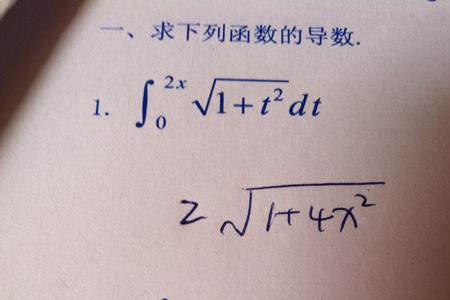 一、求下列函数的导数.
1. ∫₀²ˣ √(1+t²) dt
2√(1+4x²)